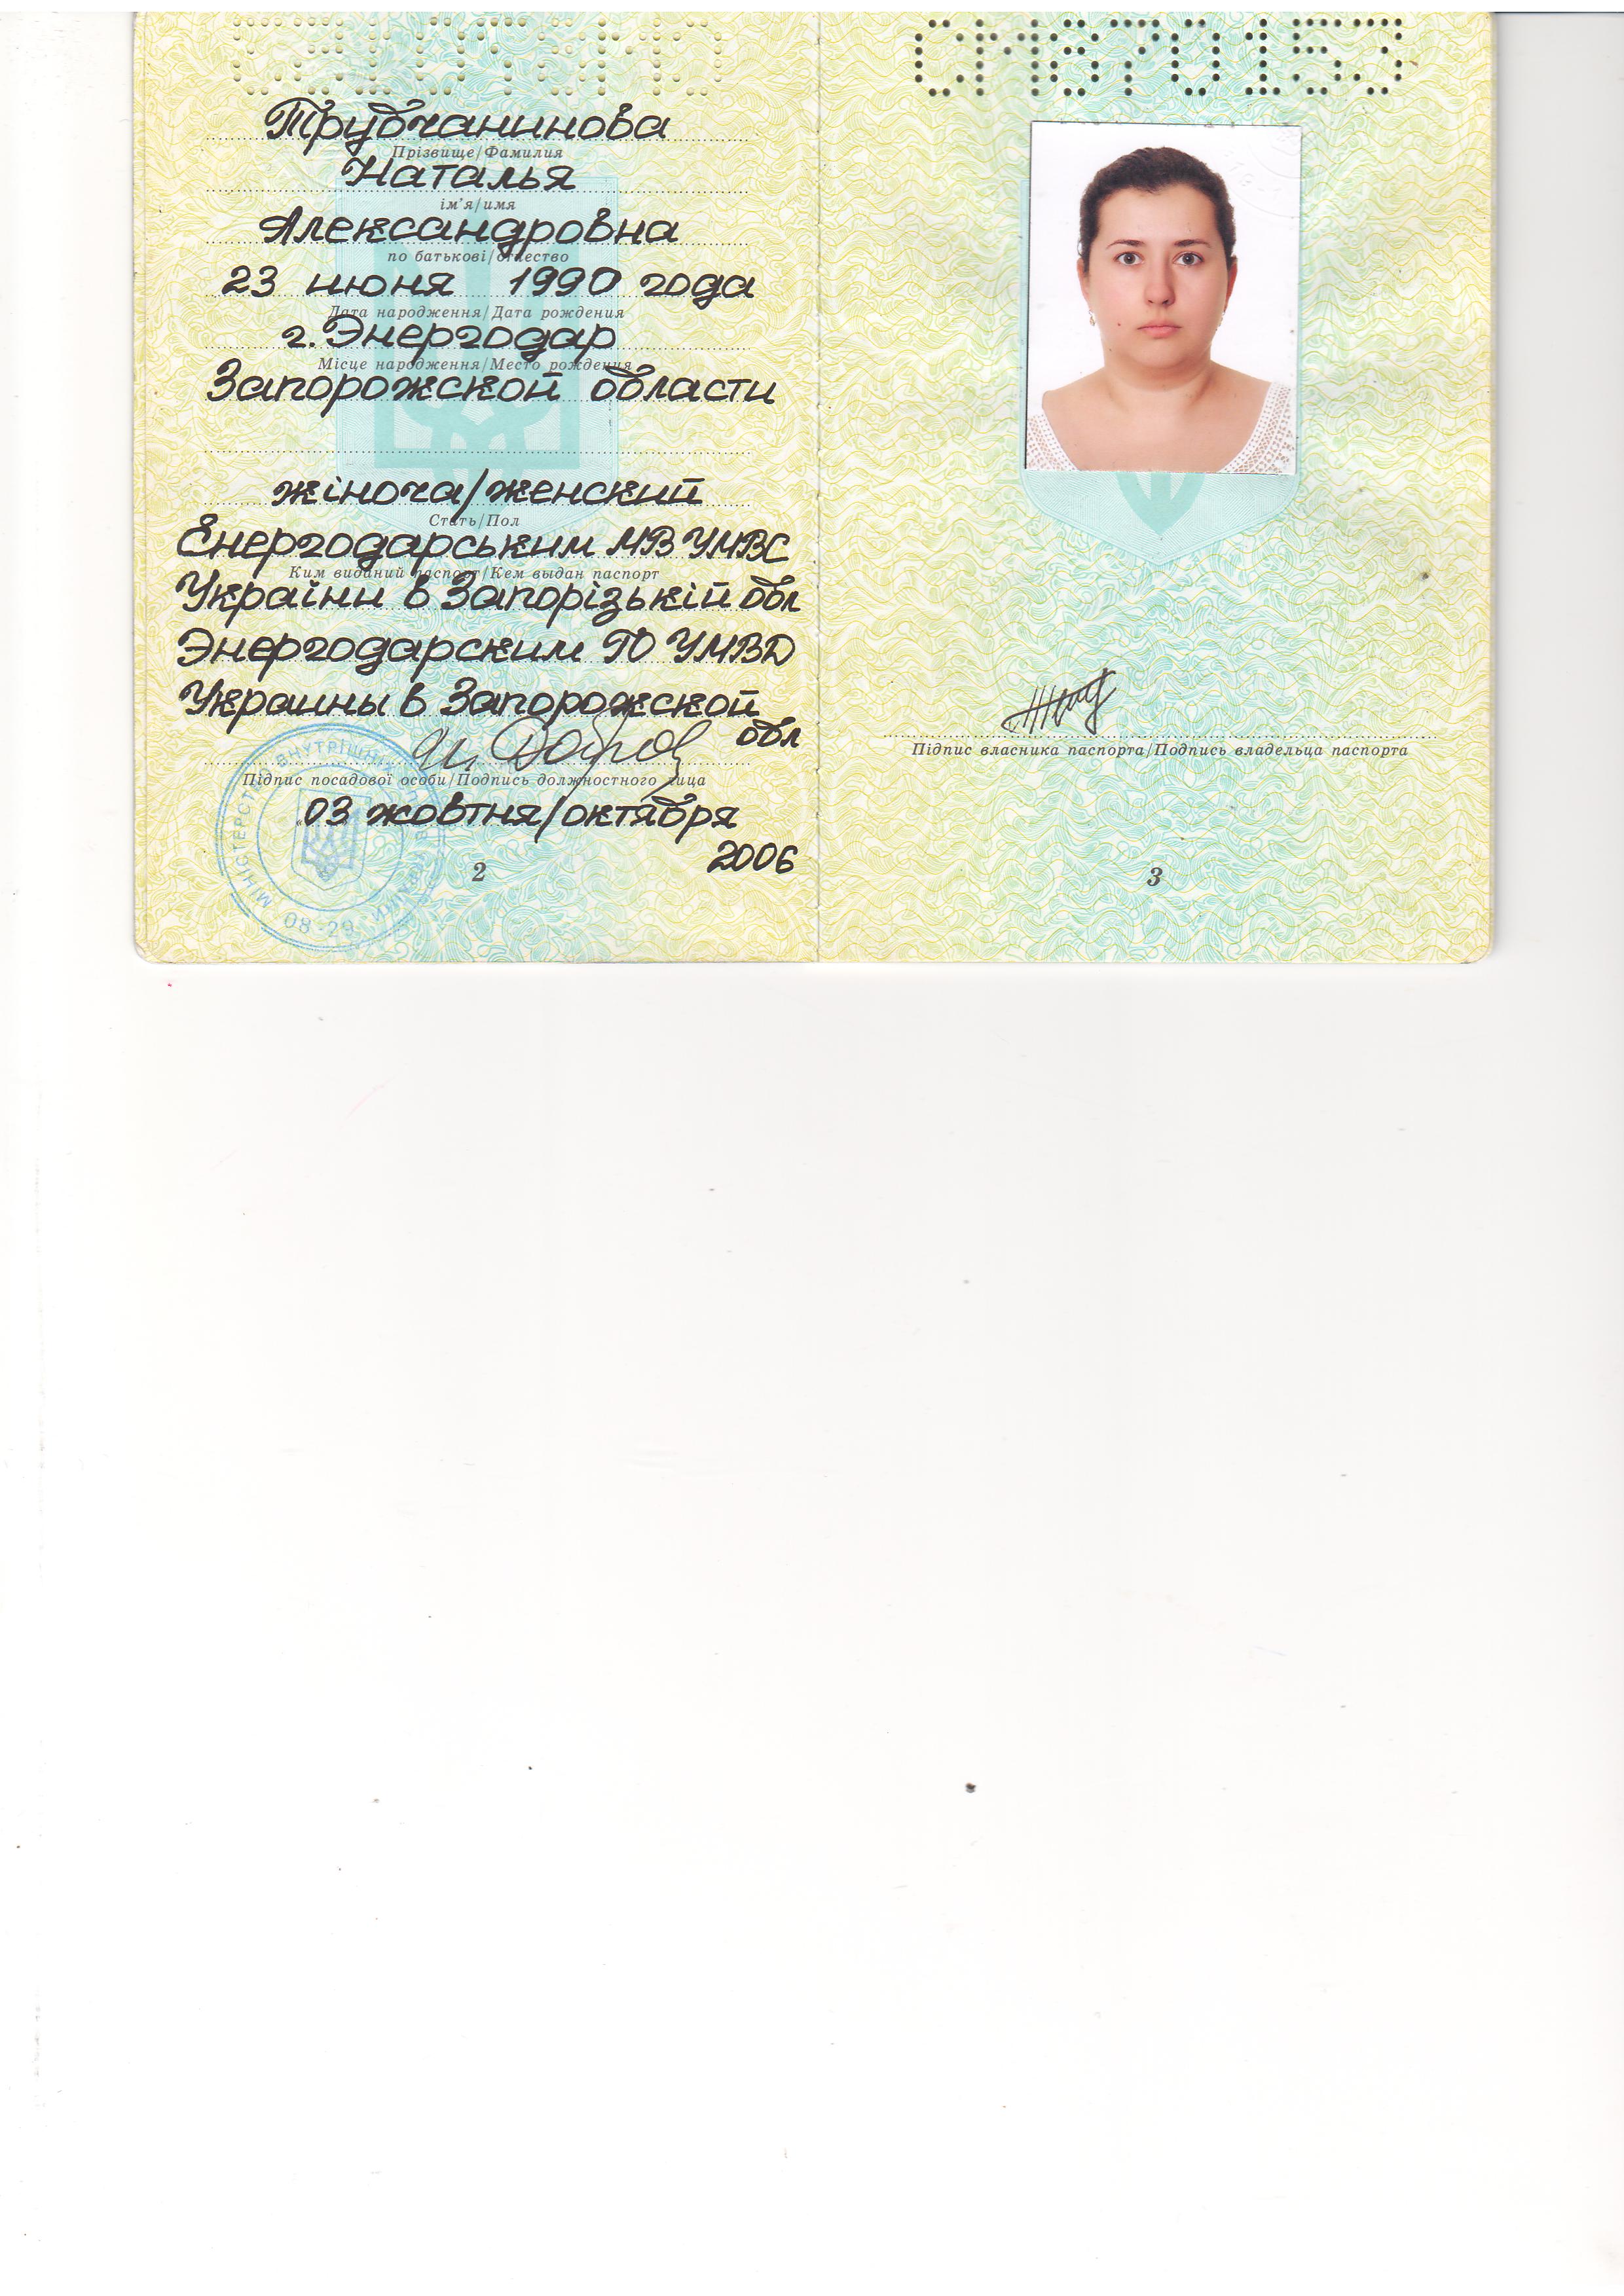 СМ870153
Трубчанинова
Прізвище/Фамилия
Наталья
ім'я/имя
Александровна
по батькові/отчество
23 июня 1990 года
Дата народження/Дата рождения
г. Энергодар
Місце народження/Место рождения
Запорожской области
жіноча/женский
Стать/Пол
Енергодарським МВ УМВС
Ким виданий паспорт/Кем выдан паспорт
України в Запорізькій обл
Энергодарским ГО УМВД
Украины в Запорожской
обл
Підпис посадової особи/Подпись должностного лица
03 жовтня/октября
2006
2
МІНІСТЕРСТВО ВНУТРІШНІХ СПРАВ УКРАЇНИ
08-29
Підпис власника паспорта/Подпись владельца паспорта
3